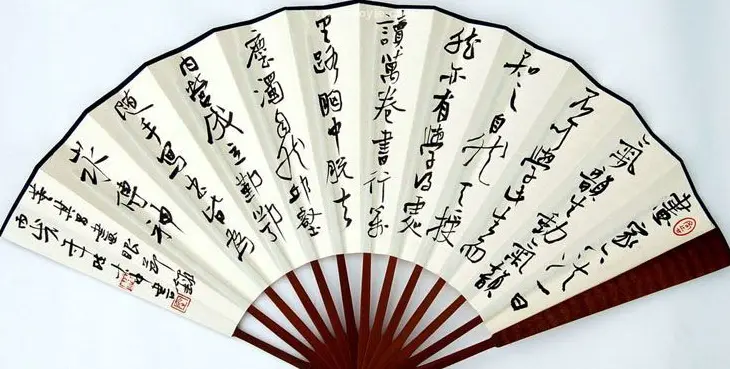 畫家六法一曰
氣韻生動氣韻
不可學此生而
知之自然天授
然亦有學得處
讀萬卷書行萬
里路胸中脫去
塵濁自然邱壑
內營成立鄞鄂
隨手寫出皆為
山水傳神